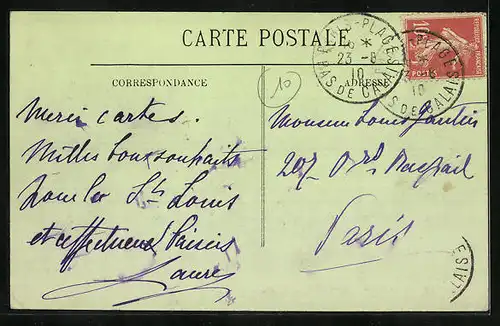 CARTE POSTALE
CORRESPONDANCE
ADRESSE
-PLAGE
23 -8
10
PAS DE CALAIS
10
Merci cartes.
Milles bons souhaits
pour la St Louis
et affectueux baisers
Laure
Monsieur Louis
207 Bd Raspail
Paris